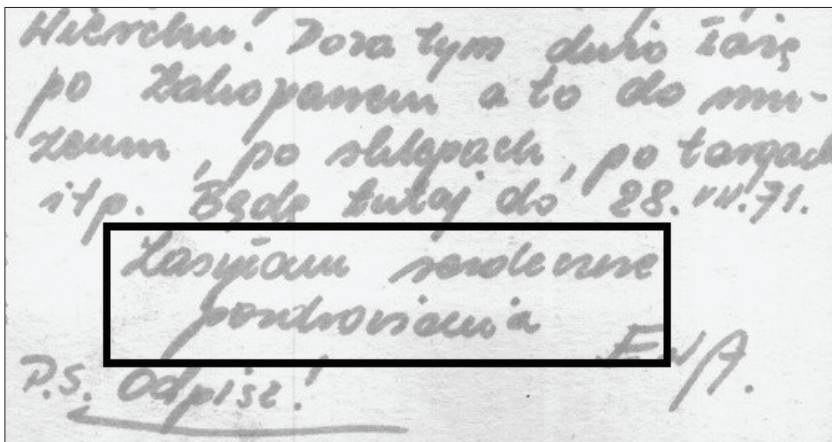 Wierchu. Poza tym dużo łażę
po Zakopanem a to do mu-
zeum, po sklepach, po targach
itp. Będę tutaj do 28.VII.71.
Zasyłam serdeczne
pozdrowienia
EWA.
P.S. Odpisz!